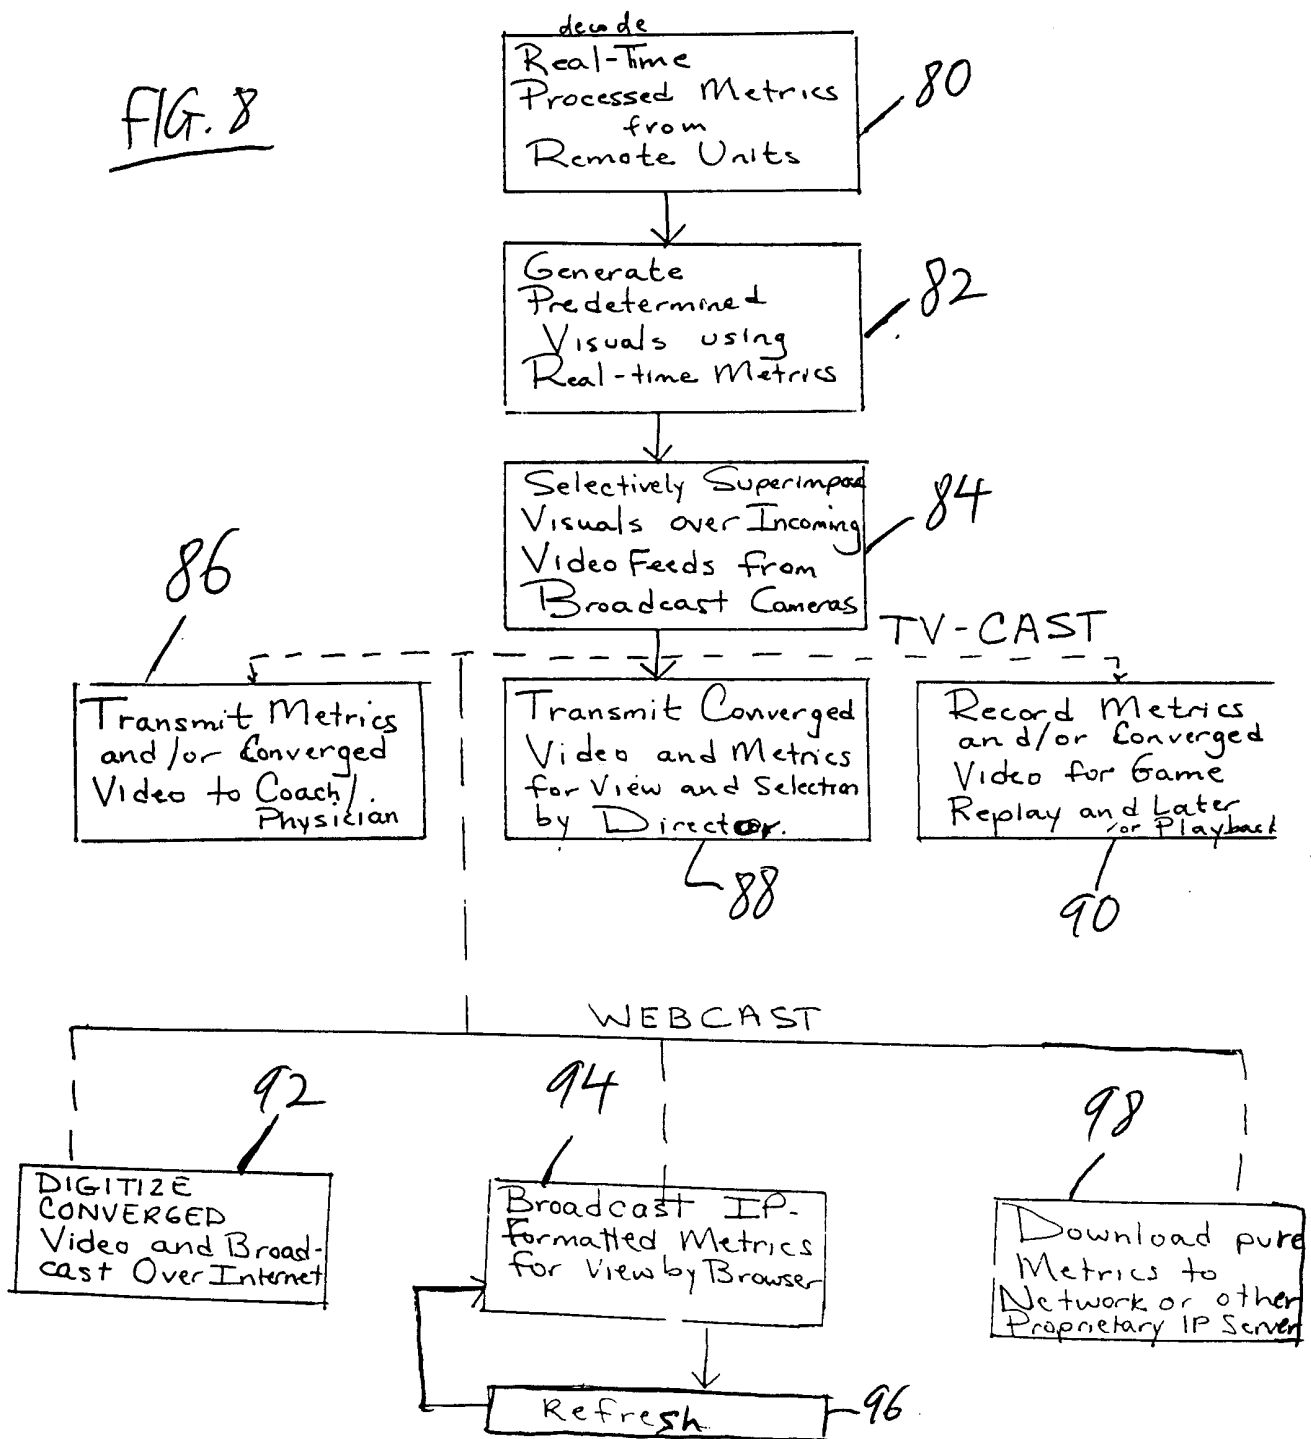 FIG. 8
decode
Real-Time
Processed Metrics
from
Remote Units
80
Generate
Predetermined
Visuals using
Real-time Metrics
82
Selectively Superimpose
Visuals over Incoming
Video Feeds from
Broadcast Cameras
84
TV-CAST
86
Transmit Metrics
and/or Converged
Video to Coach/
Physician
Transmit Converged
Video and Metrics
for View and Selection
by Director.
88
Record Metrics
and/or Converged
Video for Game
Replay and Later
/or Playback
90
WEBCAST
92
DIGITIZE
CONVERGED
Video and Broad-
cast Over Internet
94
Broadcast IP-
formatted Metrics
for View by Browser
98
Download pure
Metrics to
Network or other
Proprietary IP Server
Refresh
96